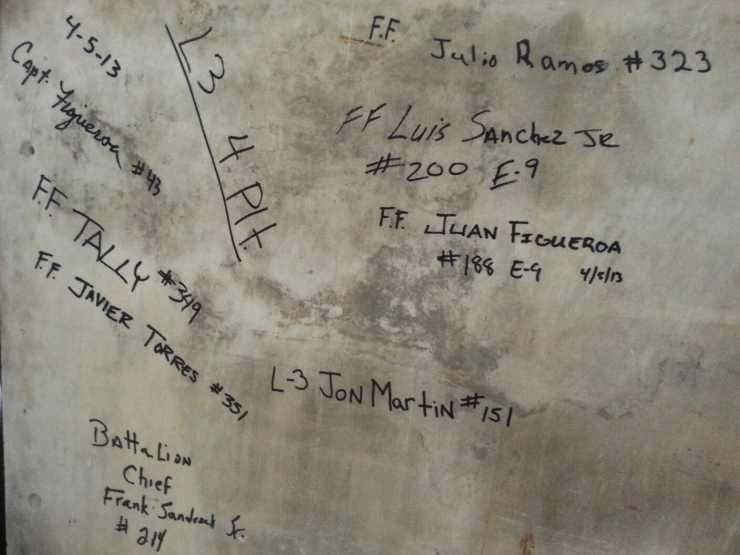 4-5-13
Capt. Figueroa #43
L3 4 Plt.
F.F. TALLY #349
F.F. JAVIER TORRES #351
Battalion
Chief
Frank
# 214
F.F. Julio Ramos #323
FF Luis Sanchez JR
#200 E-9
F.F. JUAN FIGUEROA
#188 E-9 4/5/13
L-3 JON MartiN #151